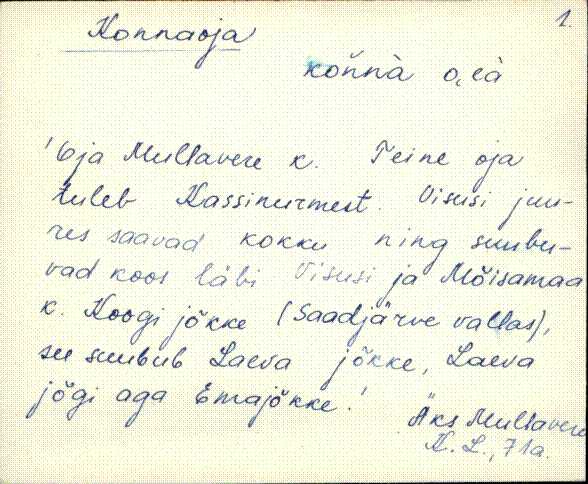 1.
Konnaoja
koǹnà o,ià
'Oja Mullavere k. Teine oja
tuleb Kassinurmest. Visusi juu-
res saavad kokku ning suubu-
vad koos läbi Visusi ja Mõisamaa
k. Koogi jõkke (Saadjärve vallas),
see suubub Laeva jõkke, Laeva
jõgi aga Emajõkke.'
Äks Mullavere
K. L., 71a.